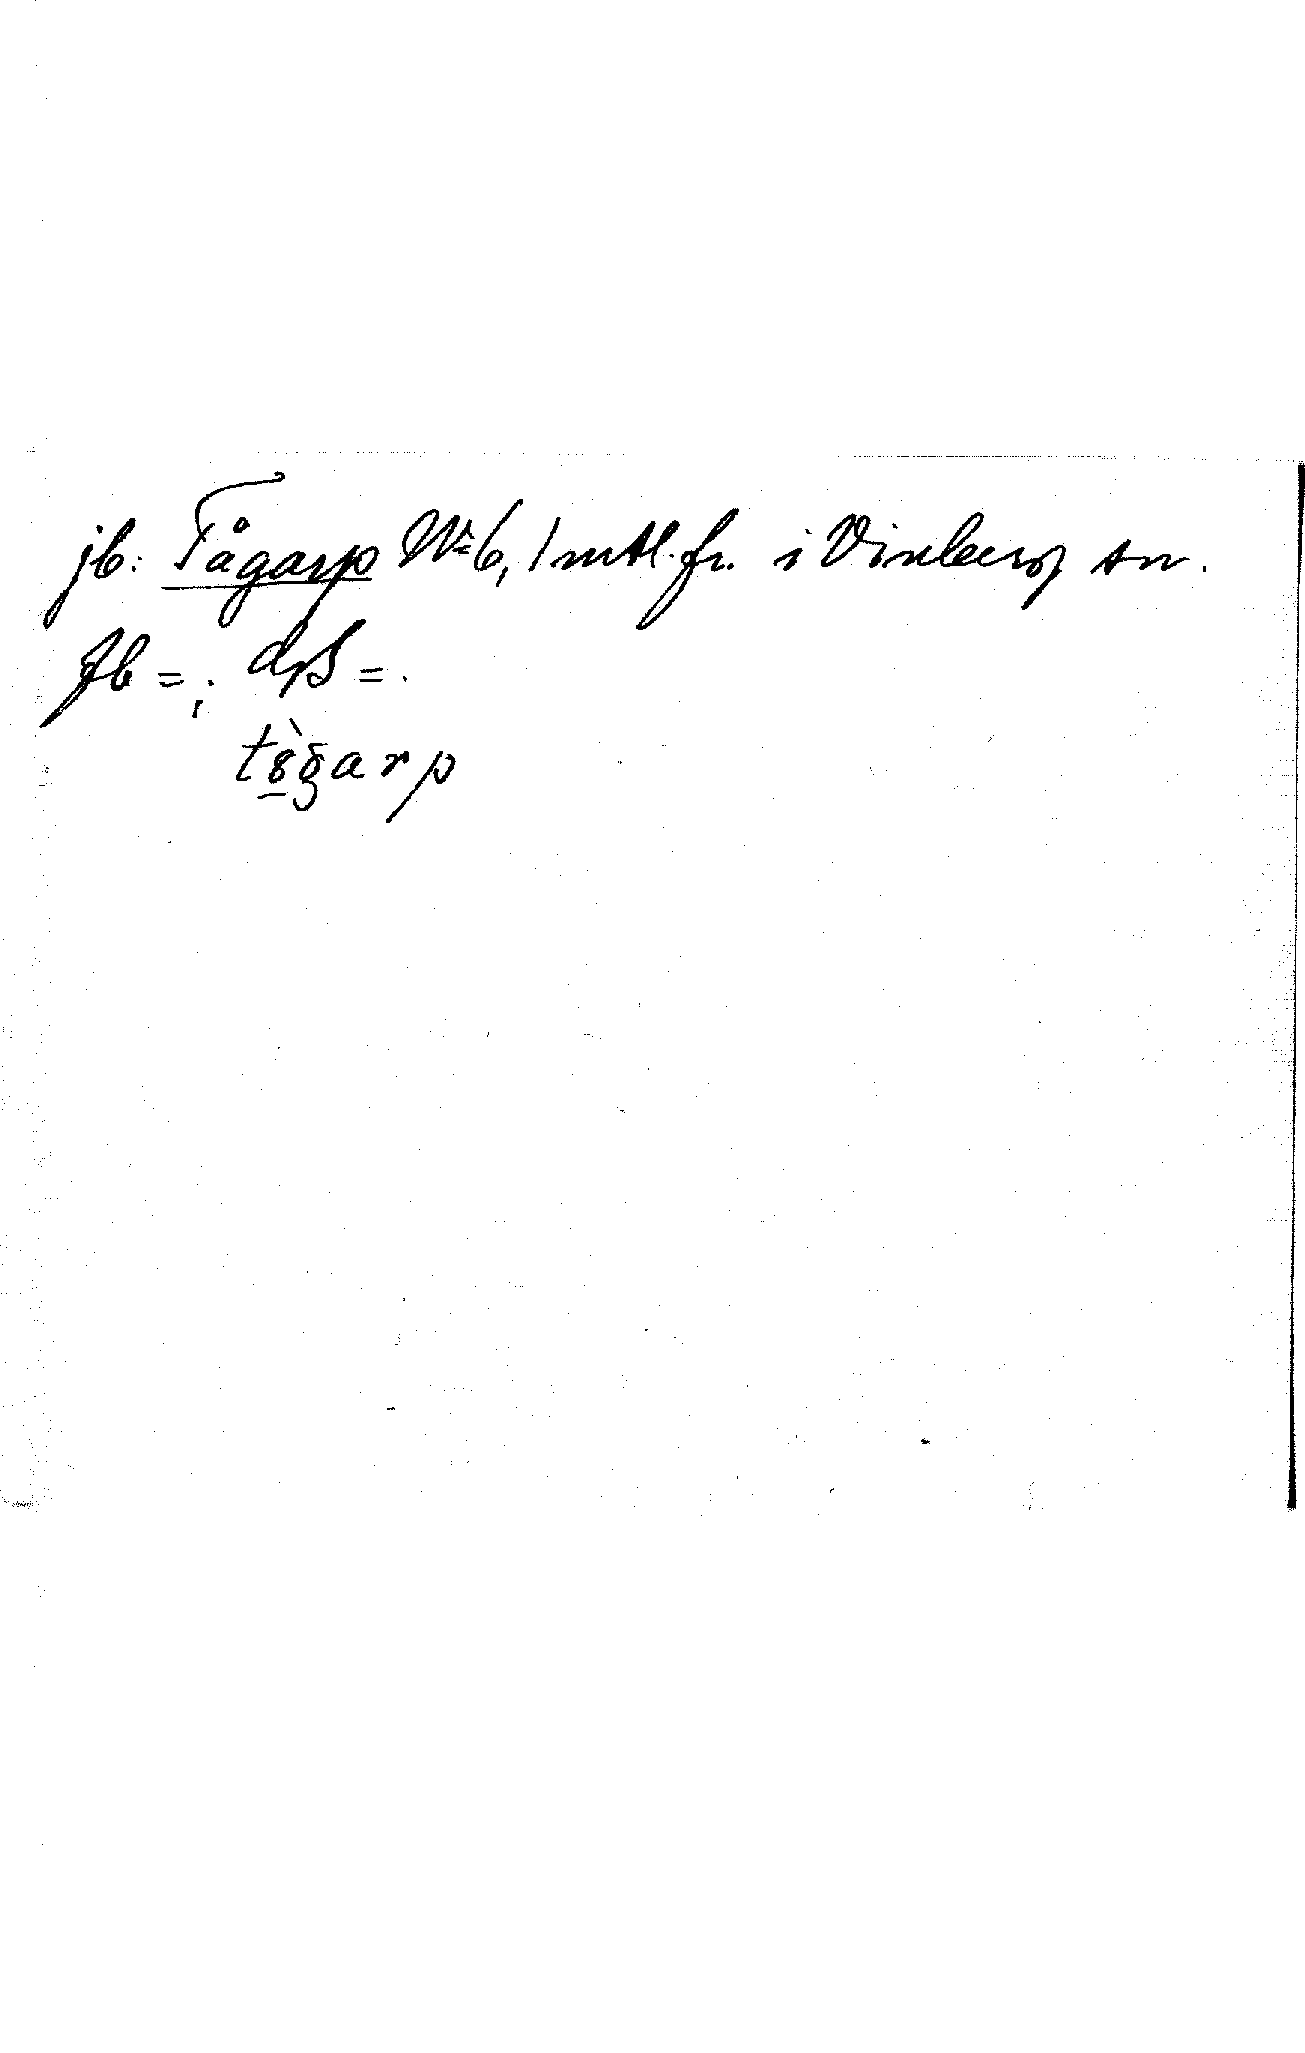 jb: Tågarp No 6, 1 mtl. fr. i Vinbergs sn.
fb = ; dſs = .
tȣ̀g̣arp